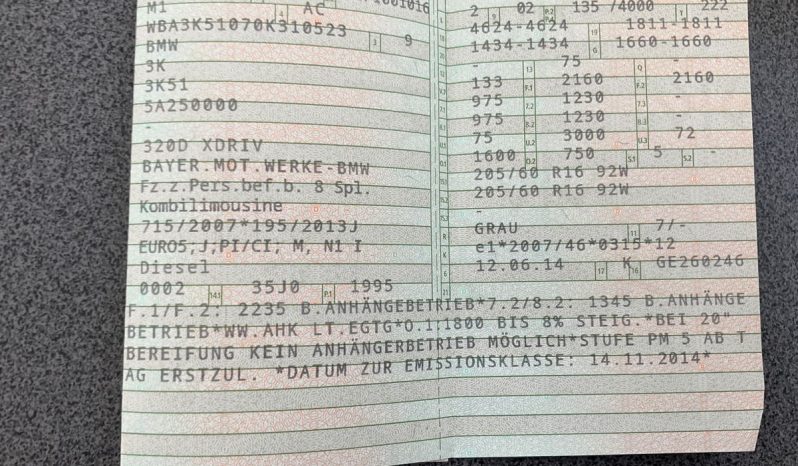 M1 4 AC
WBA3K51070K310523 3 9
BMW
3K
3K51
5A250000
-
320D XDRIV
BAYER.MOT.WERKE-BMW
Fz.z.Pers.bef.b. 8 Spl.
Kombilimousine
715/2007*195/2013J
EURO5;J;PI/CI; M, N1 I
Diesel
0002 14.1 35J0 P.1 1995
2 9 02 P.2 135 /4000 T 222
4624-4624 19 1811-1811
1434-1434 G 1660-1660
- 13 75 Q -
133 F.1 2160 F.2 2160
975 7.2 1230 7.3 -
975 8.2 1230 8.3 -
75 U.2 3000 U.3 72
1600 O.2 750 S.1 5 S.2 -
205/60 R16 92W
205/60 R16 92W
-
GRAU 11 7/-
e1*2007/46*0315*12
12.06.14 17 K 16 GE260246
F.1/F.2: 2235 B.ANHÄNGEBETRIEB*7.2/8.2: 1345 B.ANHÄNGE
BETRIEB*WW.AHK LT.EGTG*O.1:1800 BIS 8% STEIG.*BEI 20"
BEREIFUNG KEIN ANHÄNGERBETRIEB MÖGLICH*STUFE PM 5 AB T
AG ERSTZUL. *DATUM ZUR EMISSIONSKLASSE: 14.11.2014*